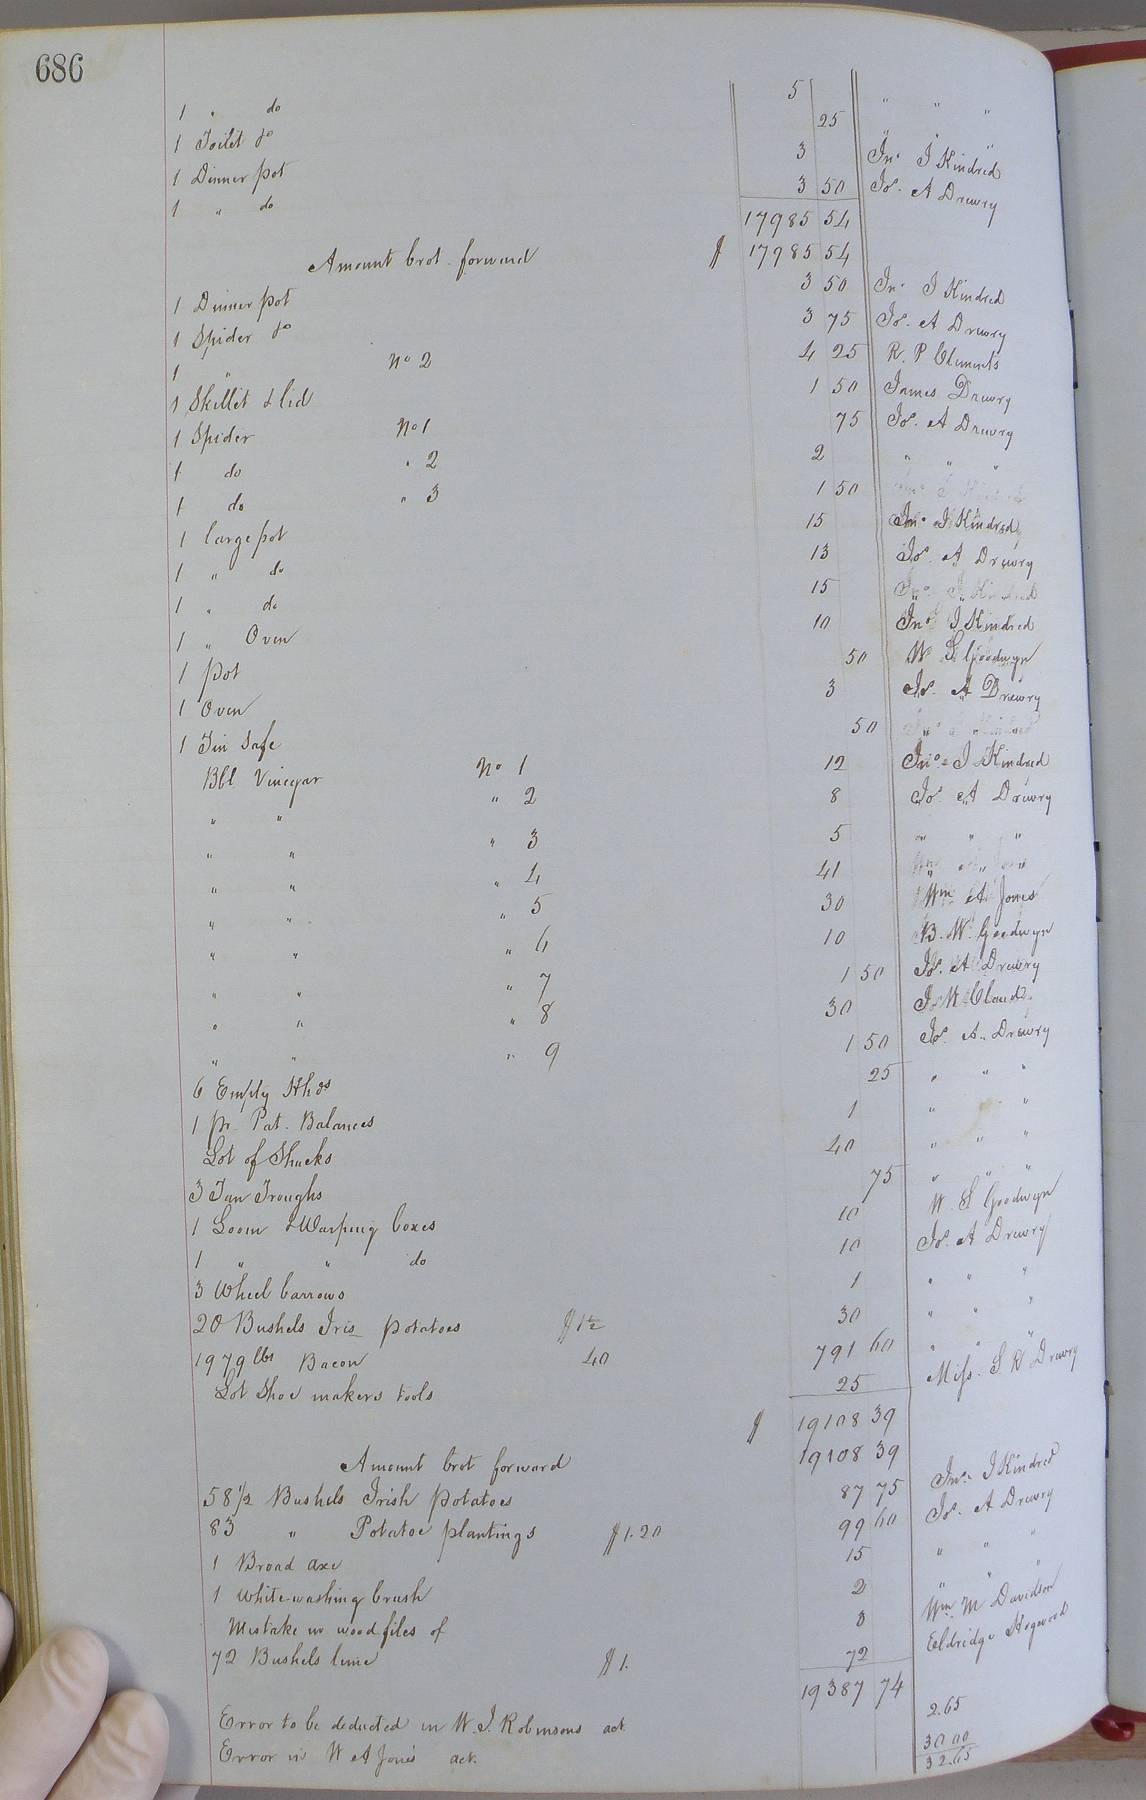 686
1 " do 5 " " "
1 Toilet do 25 " " "
1 Dinner pot 3 Jno. J Kindred
1 " do 3 50 Jos. A Drewry
17985 54
Amount brot. forward $ 17985 54
1 Dinner pot 3 50 Jno. J Kindred
1 Spider do 3 75 Jos. A Drewry
1 " No 2 4 25 R. P Clements
1 Skillet & lid 1 50 James Drewry
1 Spider No 1 75 Jos. A Drewry
1 do " 2 2 " " "
1 do " 3 1 50
1 large pot 15 Jno. J Kindred
1 " do 13 Jos. A Drewry
1 " do 15
1 " Oven 10 Jno. J Kindred
1 pot 50 W S Goodwyn
1 Oven 3 Jos. A Drewry
1 Tin Safe 50
Bbl Vinegar No 1 12 Jno. J Kindred
" " " 2 8 Jos. A Drewry
" " " 3 5 " " "
" " " 4 41
" " " 5 30 Wm A Jones
" " " 6 10 B. W. Goodwyn
" " " 7 1 50 Jos. A Drewry
" " " 8 30
" " " 9 1 50 Jos. A. Drewry
6 Empty Hhds 25 " " "
1 pr. Pat. Balances 1 " " "
Lot of Shucks 40 " " "
3 Tan Troughs 75 " " "
1 Loom & Warping boxes 10 W. S Goodwyn
1 " " do 10 Jos. A Drewry
3 Wheel barrows 1 " " "
20 Bushels Iris_ potatoes $1½ 30 " " "
1979 lbs Bacon 40 791 60 " " "
Lot Shoe makers tools 25 Miss. S. R Drewry
$ 19108 39
Amount brot forward 19108 39
58 1/2 Bushels Irish potatoes 87 75 Jno. J Kindred
83 " Potatoe plantings $1.20 99 60 Jos. A Drewry
1 Broad axe 15 " " "
1 White-washing brush 2 " " "
Mistake in wood files of 3 Wm. M Davidson
72 Bushels lime $1. 72 Eldridge Hogwood
19387 74
Error to be deducted in W. J. Robinsons act. 2.65
Error in W A Jones act. 30 00
32.65